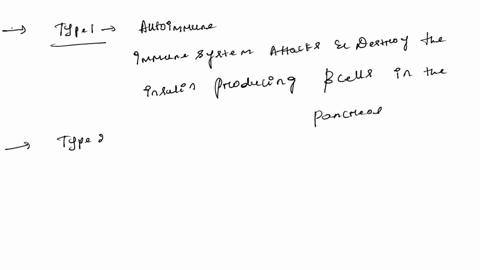 → Type 1 → Autoimmune
Immune system Attacks & Destroy the
insulin producing β cells in the
pancreas
→ Type 2